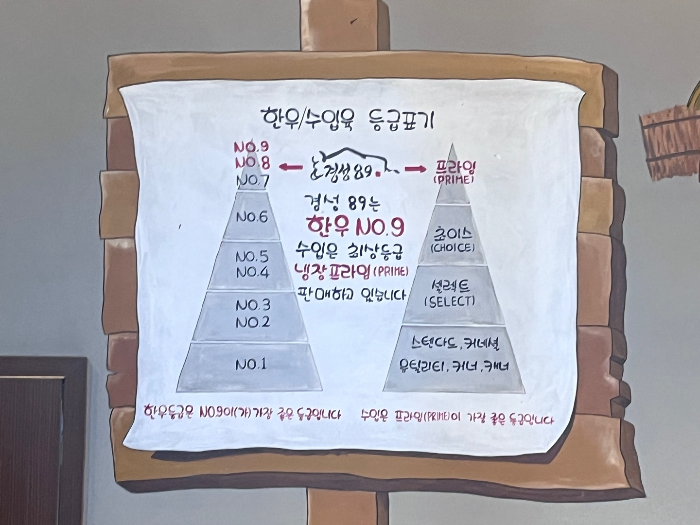 한우/수입육 등급표기
NO.9
NO.8
NO.7
NO.6
NO.5
NO.4
NO.3
NO.2
NO.1
경성 89.
경성 89는
한우 NO.9
수입은 최상등급
냉장프라임(PRIME)
판매하고 있습니다
프라임
(PRIME)
초이스
(CHOICE)
셀렉트
(SELECT)
스텐다드, 커네셜
유틸리티, 커너, 캐너
한우등급은 NO9이(가) 가장 좋은 등급입니다
수입은 프라임(PRIME)이 가장 좋은 등급입니다